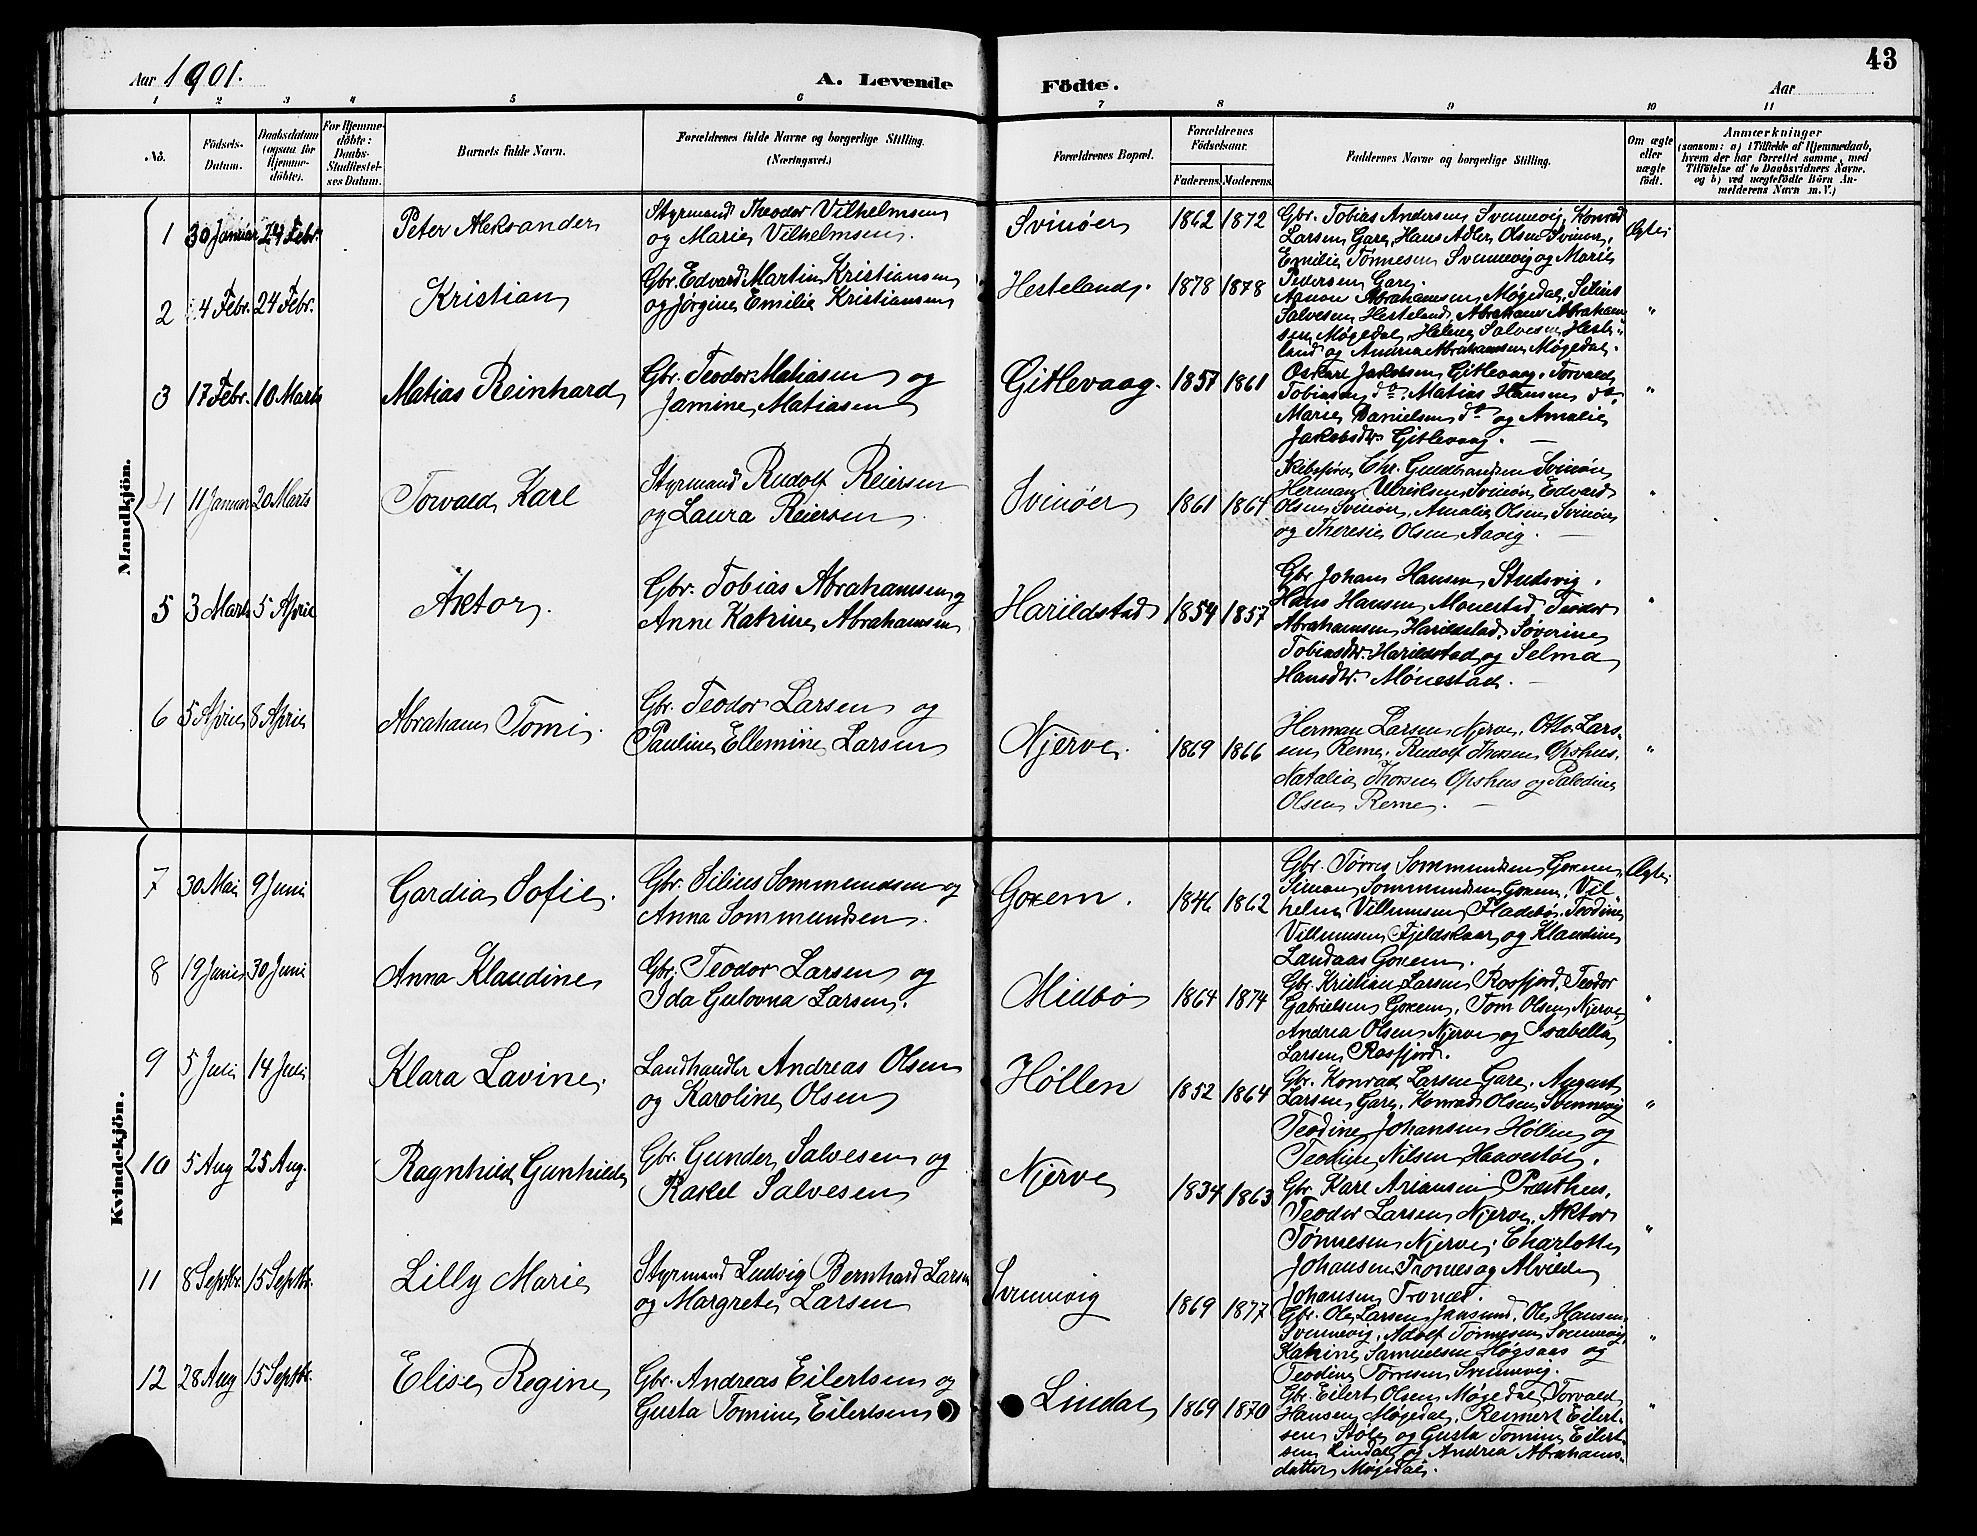 Aar 1901.
A. Levende Födte.
Aar
43
1 2 3 4 5 6 7 8 9 10 11
No.
Födsels-Datum.
Daabsdatum (ogsaa for Hjemme-döbte).
For Hjemme-döbte: Daabs-Stadfæstel-ses Datum.
Barnets fulde Navn.
Forældrenes fulde Navne og borgerlige Stilling. (Næringsvei.)
Forældrenes Bopæl.
Forældrenes Födselsaar.
Faderens. Moderens.
Faddernes Navne og borgerlige Stilling.
Om ægte eller uægte født.
Anmærkninger
(saasom: a) i Tilfælde af Hjemmedaab,
hvem der har forrettet samme, med
Tilföielse af to Daabsvidners Navne,
og b) ved uægtefödte Börn An-
melderens Navn m. V.)
Mandkjön.
1 30 Januar 24 Febr. Peter Aleksander
Styrmand Theodor Vilhelmsen
og Marie Vilhelmsen.
Svinøer 1862 1872
Gbr. Tobias Andersen Svennevig, Konrad
Larsen Gare, Hans Adler Olsen Svinør,
Emilie Tønnesen Svennevig og Marie
Pedersen Gare.
Ægte
2 4 Febr. 24 Febr. Kristian
Gbr. Edvard Martin Kristiansen
og Jørgine Emilie Kristiansen
Herteland. 1878 1878
Aanon Abrahamsen Møgedal, Silius
Salvesen Herteland, Abraham Abraham
sen Møgedal, Helene Salvesen Herte-
land og Andrea Abrahamsen Møgedal.
"
3 17 Febr. 10 Marts Matias Reinhard
Gbr. Teodor Matiasen og
Jamine Matiasen
Gitlevaag. 1857 1861
Oskar Jakobsen Gitlevaag, Torvald
Tobiasen do, Matias Hansen do,
Marie Danielsen do og Amalie
Jakobsdtr. Gitlevaag.
"
4 11 Januar 20 Marts Torvald Karl
Styrmand Rudolf Reiersen
og Laura Reiersen
Svinøer 1861 1864
Skibsfører Chr. Guldbrandsen Svinør,
Herman Ulriksen Svinør, Edvard
Olsen Svinør, Amalie Olsen Svinør
og Theresie Olsen Aavig.
"
5 3 Marts 5 April Aktor.
Gbr. Tobias Abrahamsen og
Anne Katrine Abrahamsen
Harildstad 1854 1857
Gbr Johan Hansen Studsvig,
Hans Hansen Mønestad, Teodor
Abrahamsen Harildstad, Søverine
Tobiasdtr. Harildstad og Selma
Hansdtr. Mønestad.
"
6 5 April 8 April Abraham Tomi.
Gbr. Teodor Larsen og
Pauline Ellemine Larsen
Njerve. 1869 1866
Herman Larsen Njerve, Otto Lars-
sen Reme, Rudolf Thorsen Opshus,
Natalia Thorsen Opshus og Palodine
Olsen Reme.
"
Kvindekjön.
7 30 Mai 9 Juni Gardia Sofie.
Gbr. Silius Sommundsen og
Anna Sommundsen.
Goxem. 1846 1862
Gbr. Tørres Sommundsen Goxem,
Simon Sommundsen Goxem, Vil
helm Villumsen Fladebø, Teodine
Villumsen Fjeldskaar og Klaudine
Landaas Goxem.
Ægte
8 19 Juni 30 Juni Anna Klaudine
Gbr. Teodor Larsen og
Ida Gulovna Larsen.
Midbø 1864 1874
Gbr. Kristian Larsen Rosfjord, Teodor
Gabrielsen Goxem, Tom Olsen Njerve,
Andrea Olsen Njerve og Isabella
Larsen Rosfjord.
"
9 5 Juli 14 Juli Klara Lavine.
Landhandler Andreas Olsen
og Karoline Olsen
Høllen 1852 1864
Gbr. Konrad Larsen Gare, August
Larsen Gare, Konrad Olsen Svennevig
Teodine Johansen Høllen og
Teodine Nilsen Haavestøl.
"
10 5 Aug 25 Aug. Ragnhild Gunhilde
Gbr. Gunder Salvesen og
Rakel Salvesen
Njerve 1834 1863
Gbr Karl Ariansen Præsthus,
Teodor Larsen Njerve, Aktor
Tønnesen Njerve, Charlotte
Johansen Tronæs og Alvilde
Johansen Tronæs.
"
11 8 Septbr. 15 Septbr. Lilly Marie
Styrmand Ludvig Bernhard Larsen
og Margrete Larsen
Svennevig 1869 1877
Gbr. Ole Larsen Jaasund, Ole Hansen
Svennevig, Adolf Tønnesen Svennevig,
Katrine Samuelsen Høgsaas og
Teodine Tørresen Svennevig.
"
12 28 Aug 15 Septbr. Elise Regine
Gbr. Andreas Eilertsen og
Gusta Tomine Eilertsen
Lindal 1869 1870
Gbr. Eilert Olsen Møgedal, Torvald
Hansen Møgedal, Reimert Eilert-
sen Støle og Gusta Tomine Eilert-
sen Lindal og Andrea Abrahams-
datter Møgedal.
"